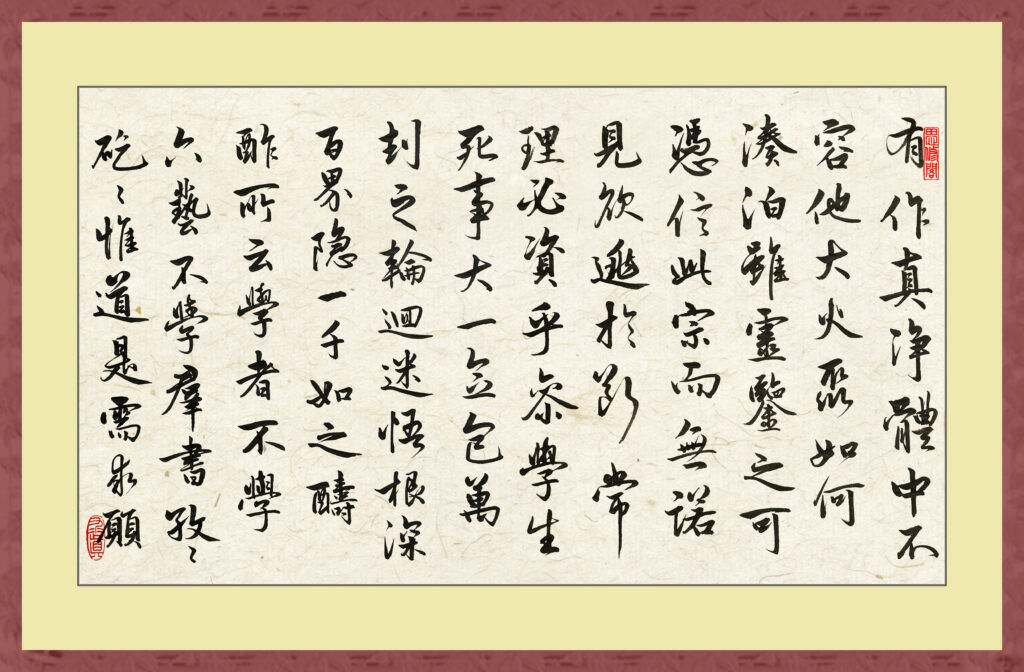 思修閣
有作真净體中不
容他大火聚如何
湊泊雖靈鑒之可
憑信此宗而無諾
見欲於斷常
理必資乎參學生
死事大一念包萬
刦之輪迴迷悟根深
百界隐一千如之醻
酢所云學者不學
六藝不學羣書孜〻
矻〻惟道是需願